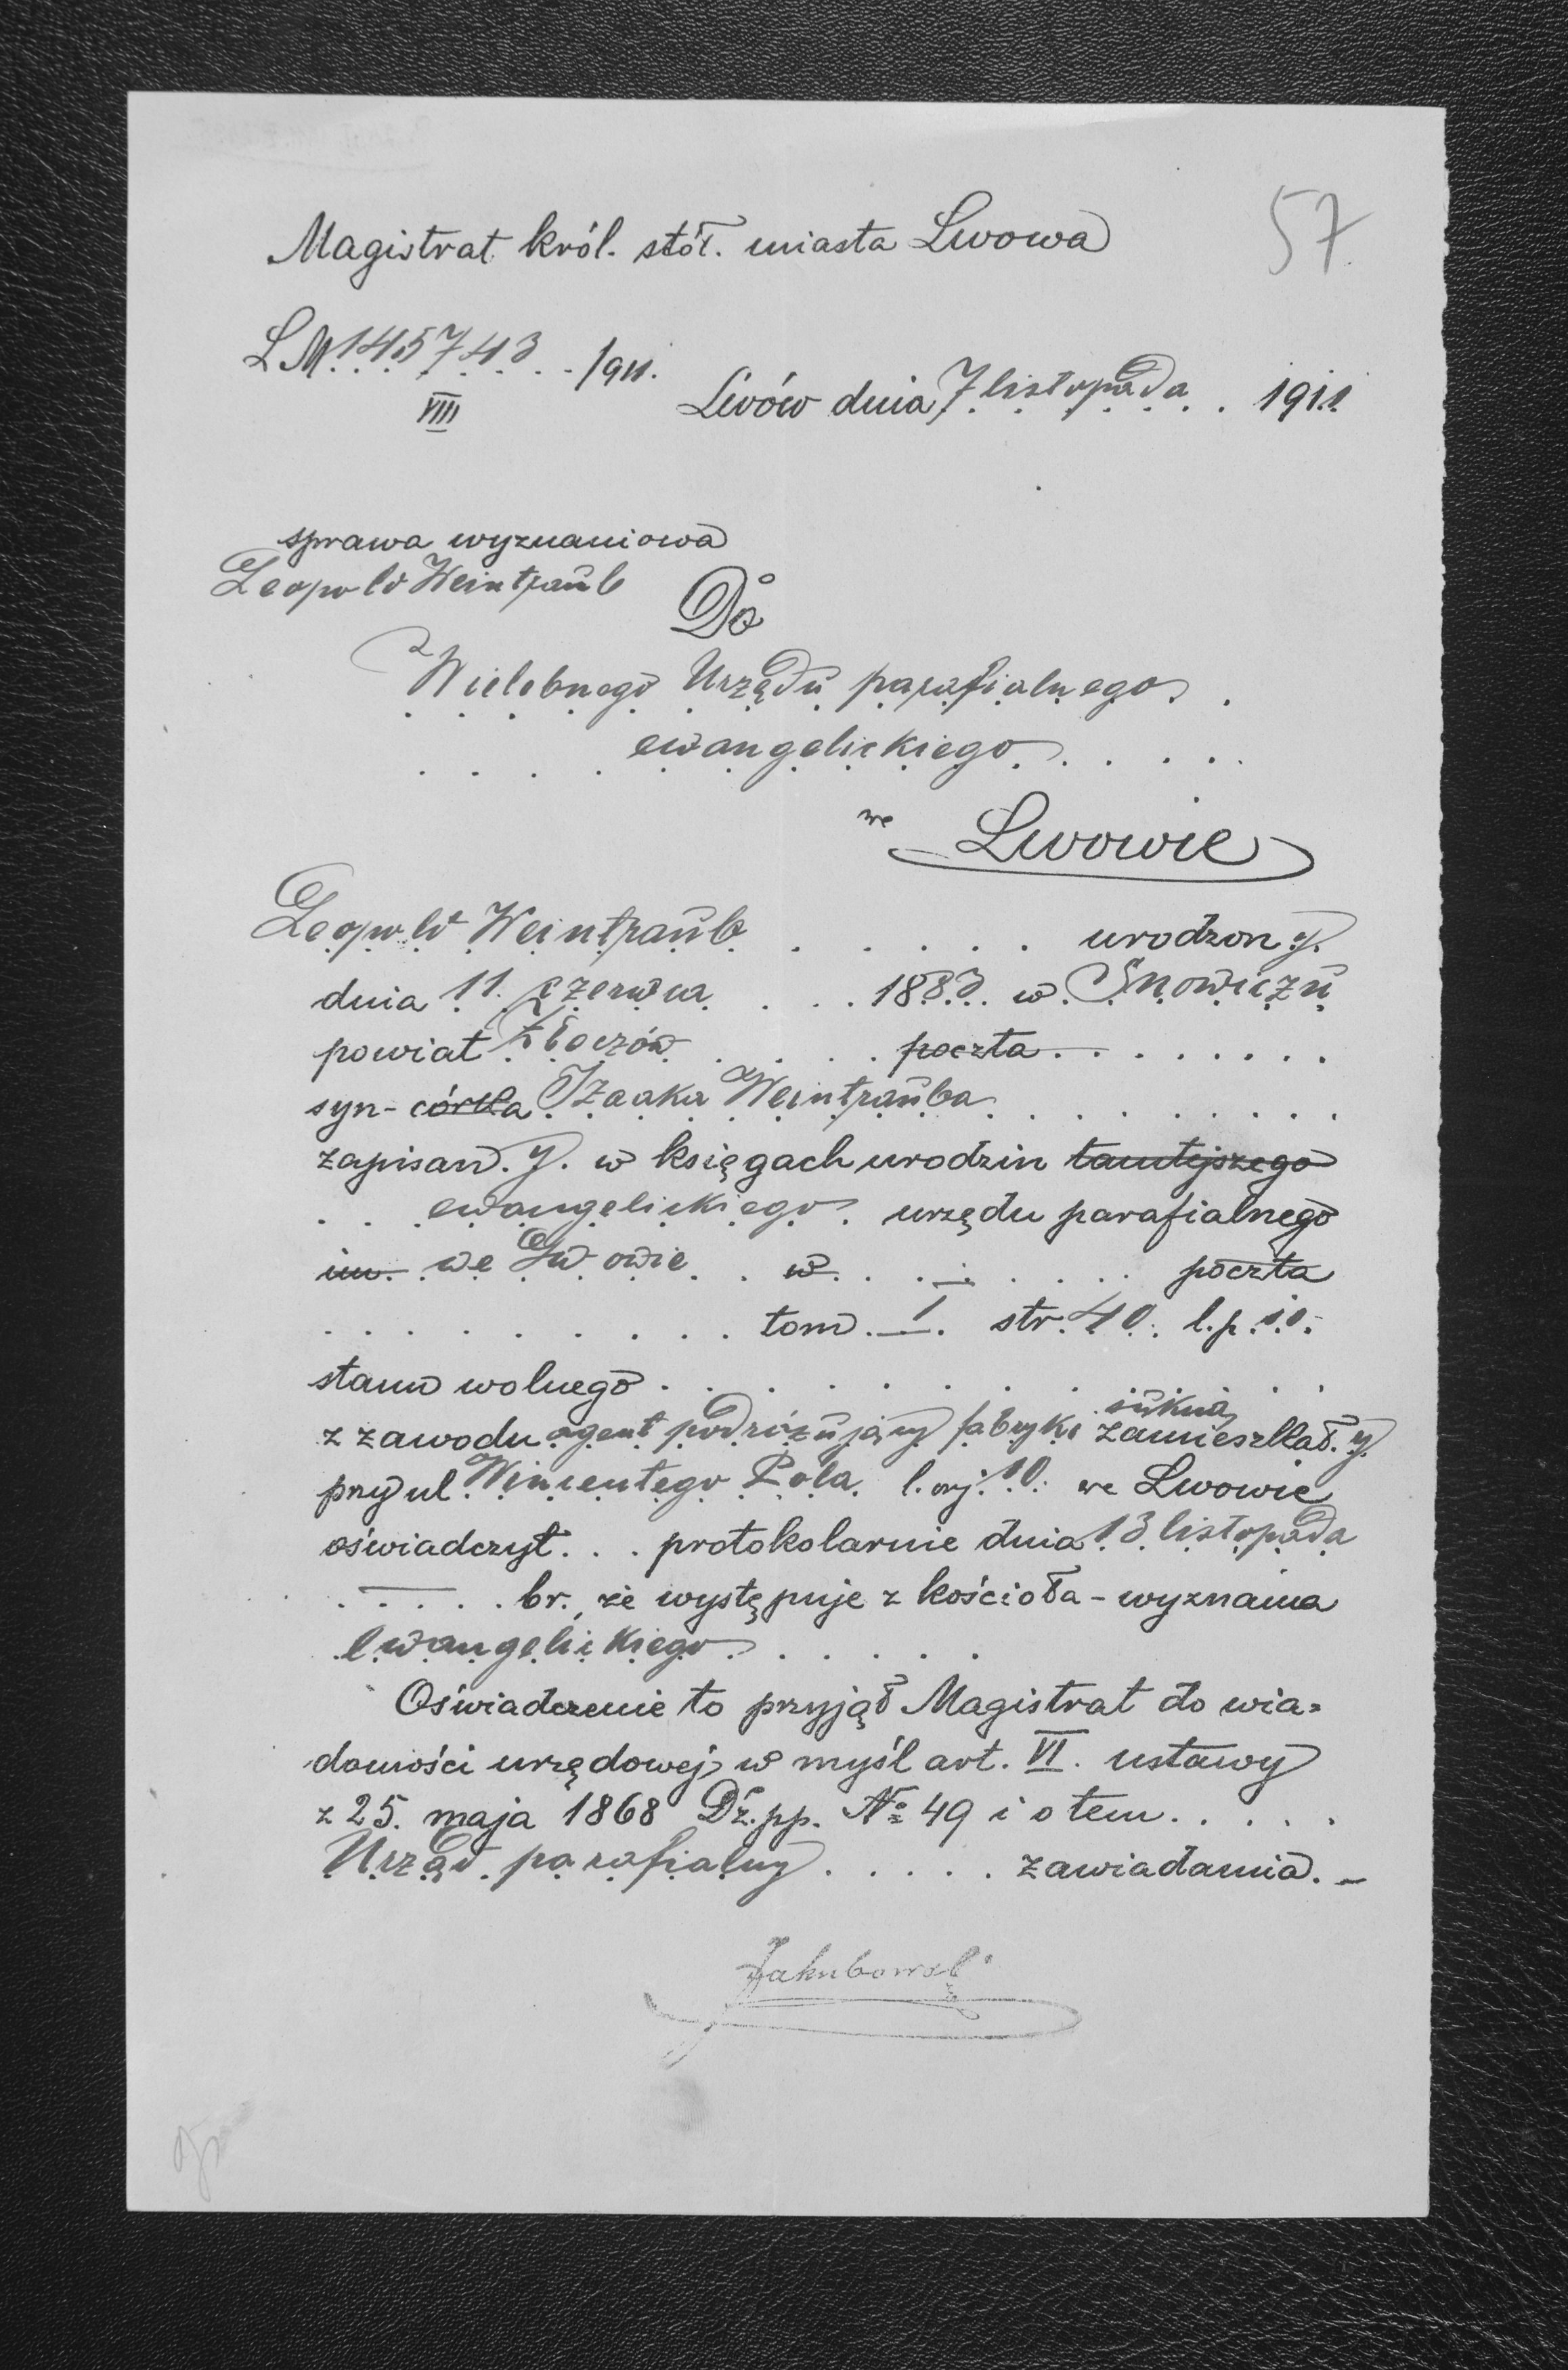 57
Magistrat król. stół. miasta Lwowa
LM. 145743 1911.
VIII
Lwów dnia 7 listopada 1911
sprawa wyznaniowa
Leopold Weintraub
Do
Wielebnego Urzędu parafialnego
ewangelickiego
we Lwowie
Leopold Weintraub urodzony
dnia 11. czerwca 1883 w Snowiczu
powiat Złoczów poczta
syn - córka Izaaka Weintrauba
zapisany w księgach urodzin tamtejszego
ewangelickiego urzędu parafialnego
im. we Lwowie w poczta
tom I. str. 40. l.p. 10.
stanu wolnego
sukna
z zawodu agent podróżujący fabryki zamieszkały
przy ul. Wincentego Pola l. orj. 10. we Lwowie
oświadczył protokolarnie dnia 13 listopada
br., że występuje z kościoła - wyznania
ewangelickiego
Oświadczenie to przyjął Magistrat do wia=
domości urzędowej w myśl art. VI. ustawy
z 25. maja 1868 Dź.pp. № 49 i o tem
Urząd parafialny zawiadamia. -
Jakubowski